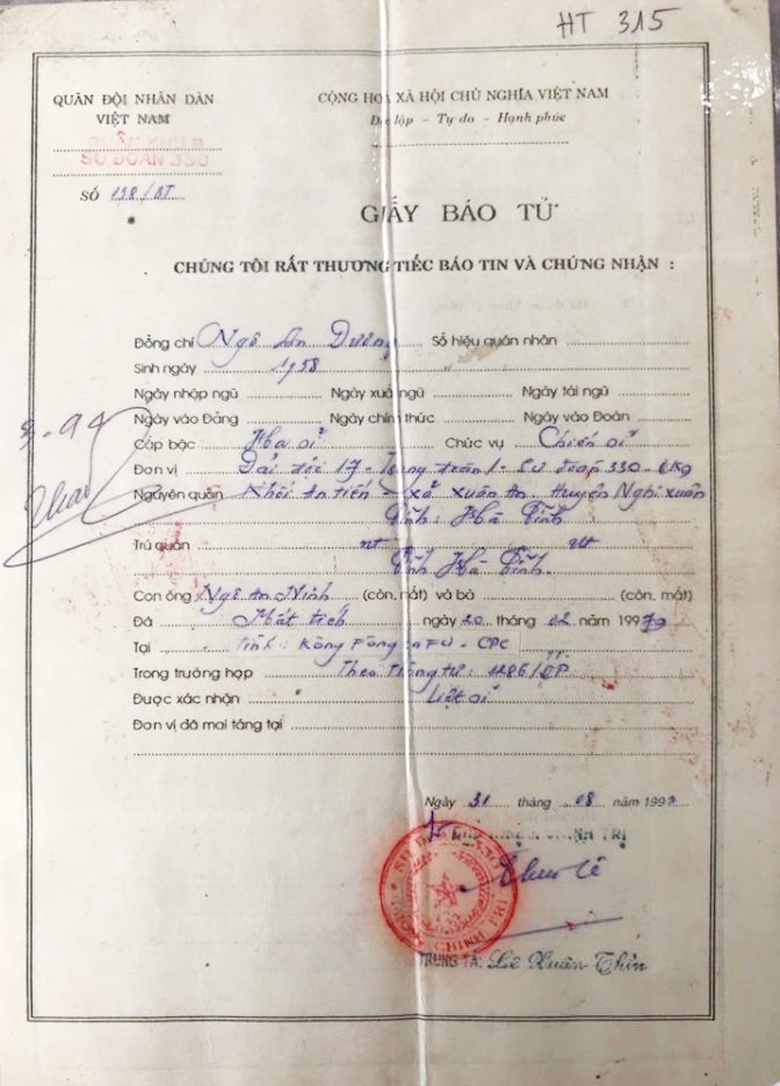 HT 315
QUÂN ĐỘI NHÂN DÂN
VIỆT NAM
CỘNG HOÀ XÃ HỘI CHỦ NGHĨA VIỆT NAM
Độc lập - Tự do - Hạnh phúc
QUÂN KHU 9
SƯ ĐOÀN 330
SỐ 198/BT
GIẤY BÁO TỬ
CHÚNG TÔI RẤT THƯƠNG TIẾC BÁO TIN VÀ CHỨNG NHẬN :
Đồng chí Ngô An Dương Số hiệu quân nhân
Sinh ngày 1958
Ngày nhập ngũ Ngày xuất ngũ Ngày tái ngũ
Ngày vào Đảng Ngày chính thức Ngày vào Đoàn
Cấp bậc Hạ sĩ Chức vụ Chiến sĩ
Đơn vị Đại đội 17 - Trung đoàn 1 - Sư đoàn 330 - QK9
Nguyên quán Khối An tiến - xã Xuân An. Huyện Nghi xuân
Tỉnh: Hà Tĩnh
Trú quán nt nt
Tỉnh Hà Tĩnh.
Con ông Ngô An Ninh (còn, mất) và bà (còn, mất)
Đã Mất tích ngày 20 tháng 02 năm 1979
Tại Tỉnh: Kông Pông - CPC
Trong trường hợp Theo Thông tư: 1286/QP
Được xác nhận Liệt sĩ
Đơn vị đã mai táng tại
Ngày 31 tháng 08 năm 199
CHÍNH TRỊ
TRUNG TÁ: Lê Xuân Thìn